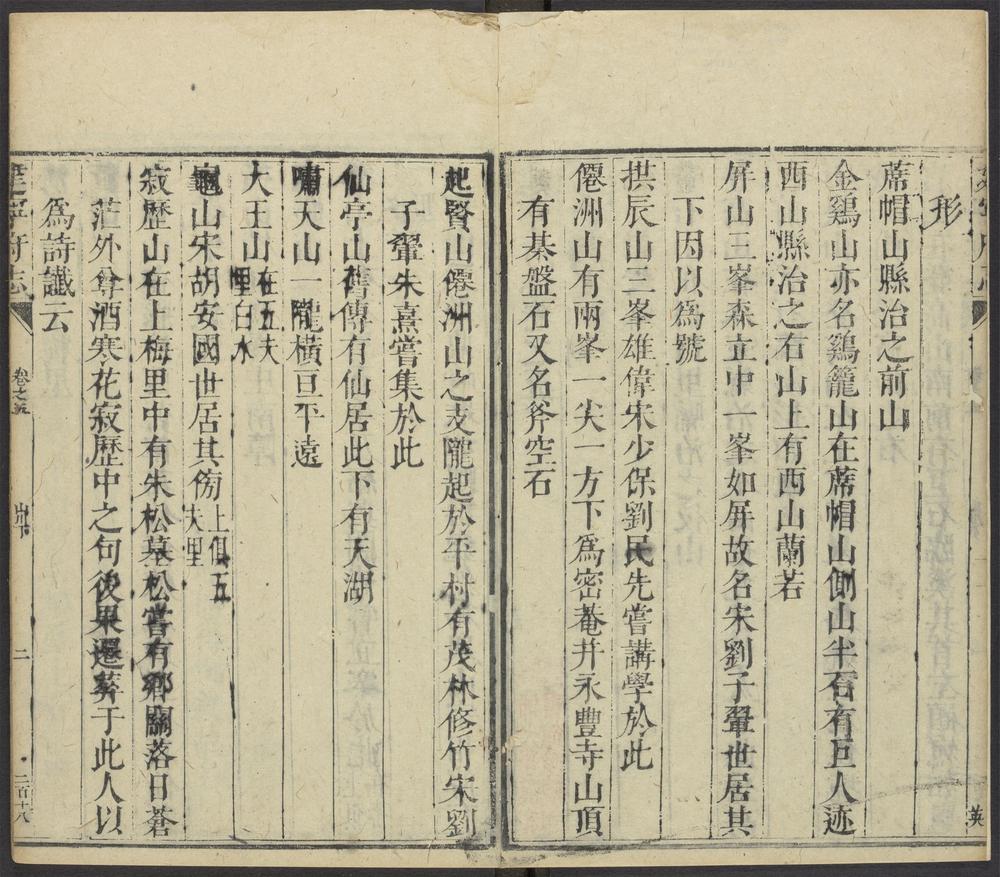 形
蓆帽山縣治之前山
金鷄山亦名鷄籠山在蓆帽山側山半石有巨人迹
西山縣治之右山上有西山蘭若
屏山三峯森立中一峯如屏故名宋劉子翬世居其
下因以爲號
拱辰山三峯雄偉宋少保劉民先嘗講學於此
僊洲山有兩峯一尖一方下爲密菴井永豐寺山頂
有棊盤石又名斧空石
起賢山僊洲山之支隴起於平村有茂林修竹宋劉
子翬朱熹嘗集於此
仙亭山舊傳有仙居此下有天湖
嘯天山一隴橫亘平遠
大王山在五夫里白水
龜山宋胡安國世居其傍上俱五夫里
寂歷山在上梅里中有朱松墓松嘗有鄉關落日蒼
茫外尊酒寒花寂歷中之句後果遷葬于此人以
爲詩讖云
建寧府志 卷之五 山下 二 二百十八
英